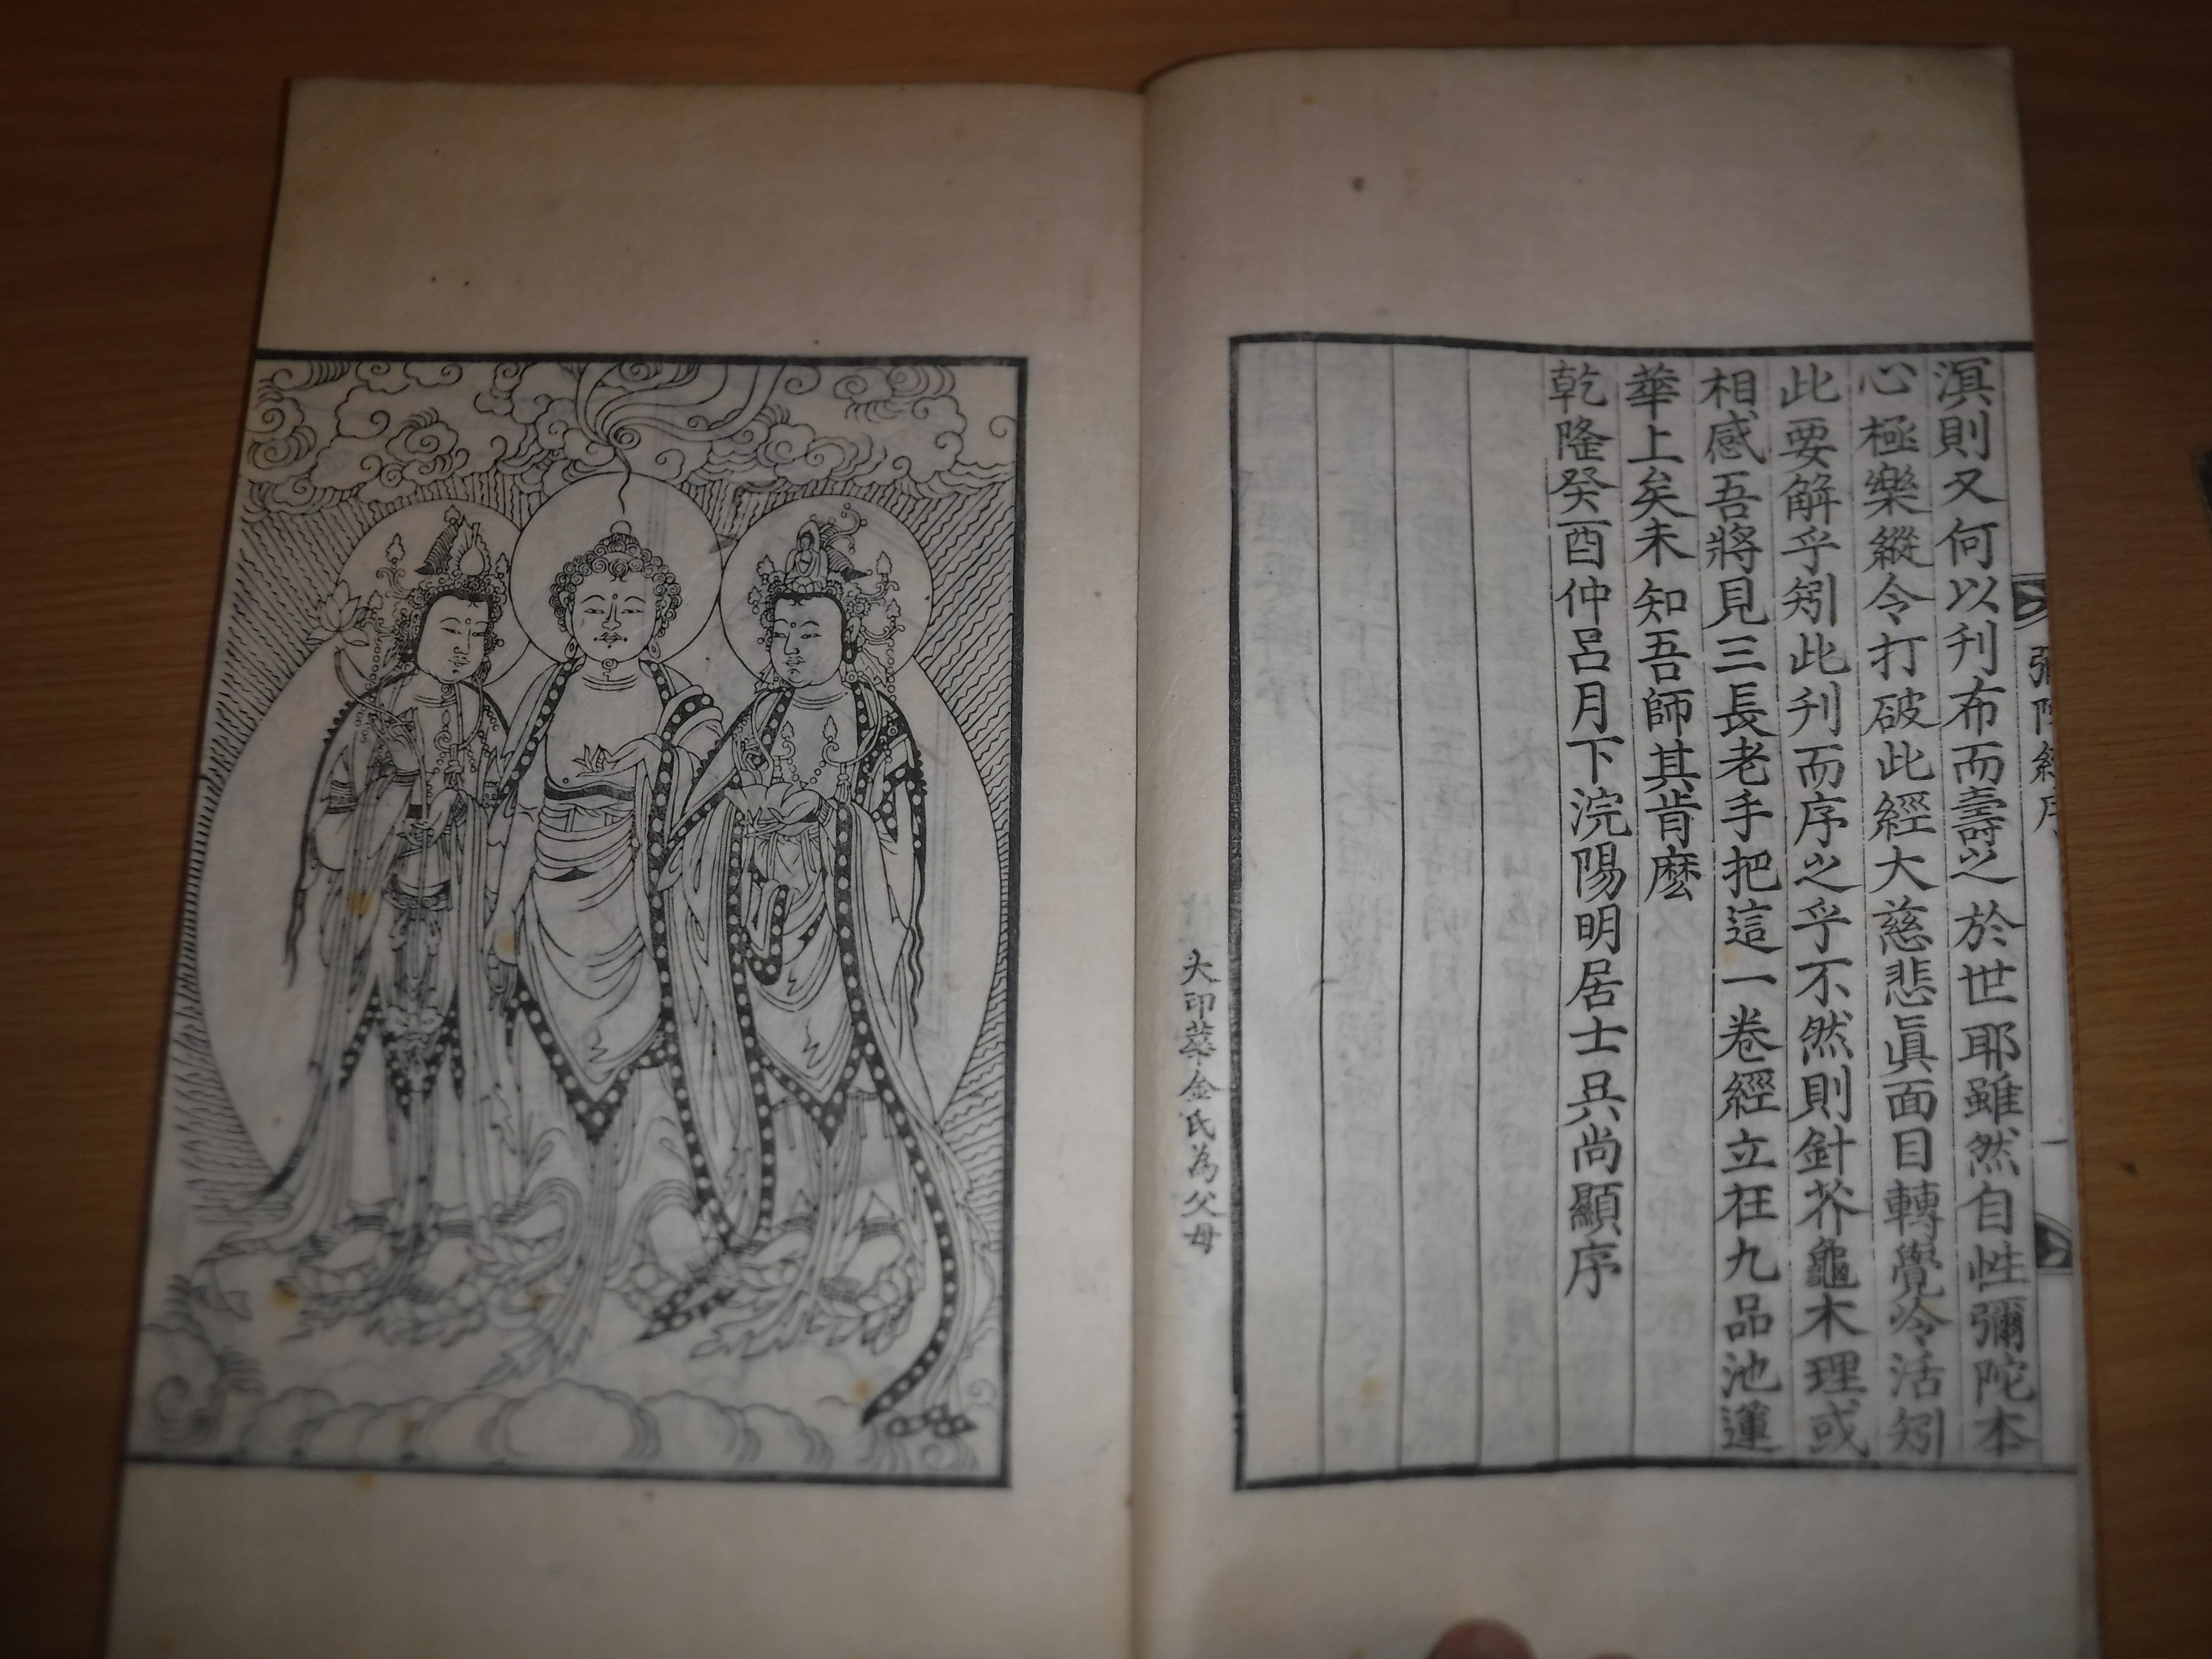 彌陀經序
一
溟則又何以刋布而壽之於世耶雖然自性彌陀本
心極樂縱令打破此經大慈悲眞面目轉覺冷活矧
此要解乎矧此刋而序之乎不然則針芥龜木理或
相感吾將見三長老手把這一卷經立在九品池蓮
華上矣未知吾師其肯麽
乾隆癸酉仲呂月下浣陽明居士兵尚顯序
大印華金氏為父母